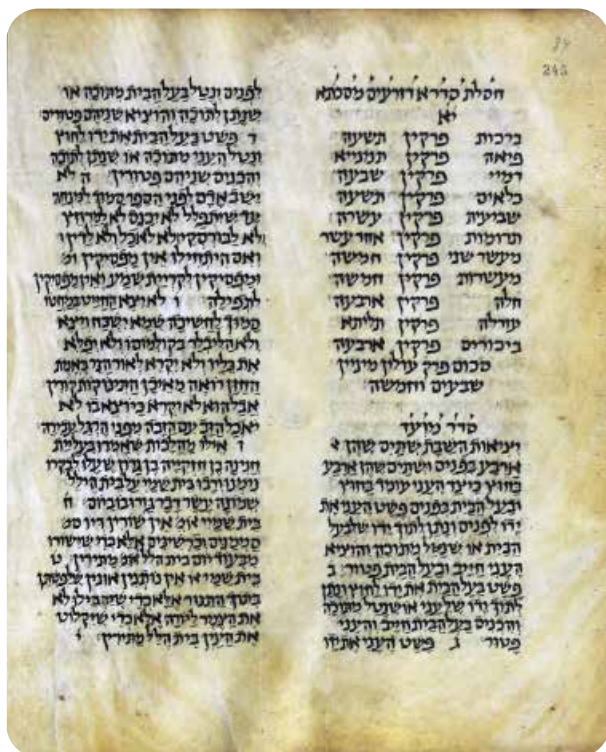 חסלת סדרא דזרעים מסכתא
יא
ברכות פרקין תשעה
פיאה פרקין תמנייא
דמיי פרקין שבעה
כלאים פרקין תשעה
שביעית פרקין עשרה
תרומות פרקין אחד עשר
מעשר שני פרקין חמשה
מעשרות פרקין חמשה
חלה פרקין ארבעה
עורלה פרקין תליתא
ביכורים פרקין ארבעה
סכום פרק עולין מיניין
שבעים וחמשה
סדר מועד
יציאות השבת שתים שהן א
ארבע בפנים ושתים שהן ארבע
בחוץ כיצד העני עומד בחוץ
ובעל הבית בפנים פשט העני את
ידו לפנים ונתן לתוך ידו שלבעל
הבית או שנטל מתוכה והוציא
העני חייב ובעל הבית פטור ב
פשט בעל הבית את ידו לחוץ ונתן
לתוך ידו שלעני או שנטל מתוכה
והכניס בעל הבית חייב והעני
פטור ג פשט העני את ידו
לפנים ונטל בעל הבית מתוכה או
שנתן לתוכה והוציא שניהם פטורים
ד פשט בעל הבית את ידו לחוץ
ונטל העני מתוכה או שנתן לתוכה
והכניס שניהם פטורין ה לא
ישב אדם לפני הספר סמוך למנחה
עד שיתפלל לא יכנס לא למרחץ
ולא לבורסקין לא לאכל ולא לדין ו
ואם התחילו אין מפסיקין ומ
ומפסיקין לקריית שמע ואין מפסיקין
לתפילה ו לא יצא החייט במחטו
סמוך לחשיכה שמא ישכח ויצא
ולא הליבלר בקולמוסו ולא יפלא
את כליו ולא יקרא לאור הנר באמת
החזן רואה מאיכן התינוקות קורין
אבל הוא לא יקרא כיוצא בו לא
יאכל הזב עם הזבה מפני הרגל עבירה
ז אילו מהלכות שאמרו בעליית
חנניה בן חזקיה בן גרון שעלו לבקרו
נימנו ורבו בית שמי על בית הילל
שמונה עשר דבר גזרו בו ביום ח
בית שמיי אומ אין שורין דיו סמ
סממנים וכרשינים אלא כדי שישורו
מבעוד יום בית הלל אמ מתירין ט
בית שמי או אין נותנין אונין שלפשתן
בתוך התנור אלא כדי שיהבילו לא
את הצמר ליורה אלא כדי שיקלוט
את העין בית הלל מתירין י